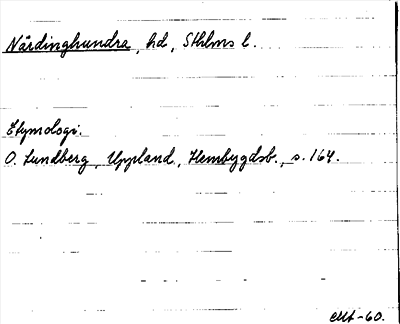 Närdinghundra, hd, Sthlms l.
Etymologi.
O. Lundberg, Uppland, Hembygdsb., s. 164.
-60.